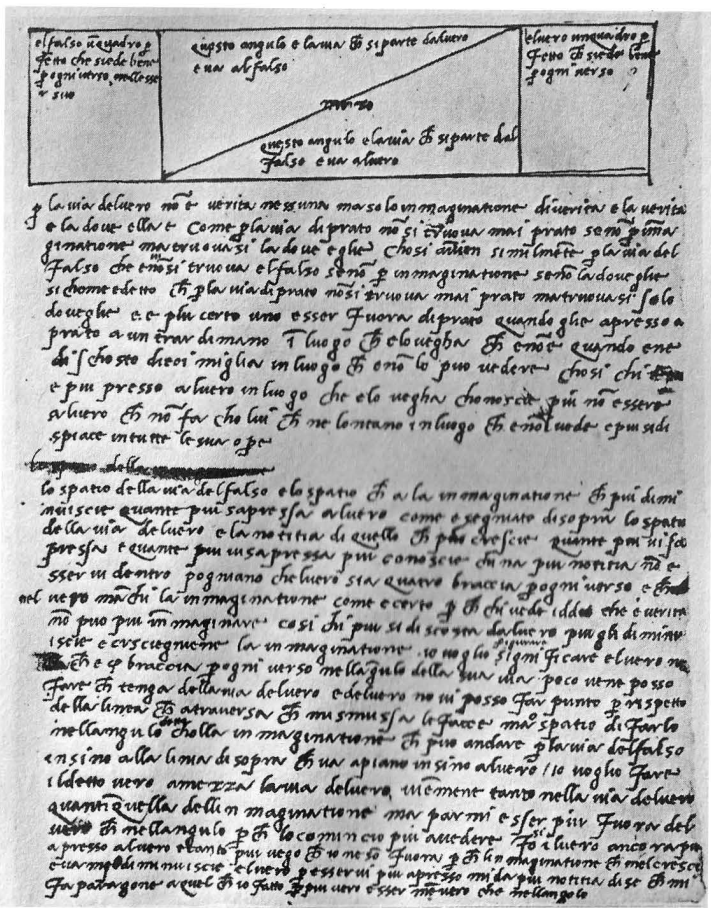 el falso ũ quadro ꝑ
fetto che siede bene
ꝑ ogni verso nellesse
r suo
questo angulo e la via cħ si parte dal vero
e va al falso
mezzo
questo angulo e la via cħ si parte dal
falso e va al vero
el vero un quadro ꝑ
fetto cħ siede bene
ꝑ ogni verso
ꝑ la via del vero nõ e verita nessuna ma solo inmaginatione di verita e la verita
e la dove ella e come ꝑ la via di prato nõ si truova mai prato se nõ ꝑ ima
ginatione ma truovasi la dove eglie chosi avien similmẽte ꝑ la via del
falso che nõ si truova el falso se nõ ꝑ inmaginatione se nõ la dove glie
si chome e detto cħ ꝑ la via di prato nõ si truova mai prato ma truovasi solo
dove glie e e piu certo uno esser fuora di prato quando glie apresso a
prato a un trar di mano ĩ luogo cħ e lo vegha cħ e nõ e quando e ne
discosto dieci miglia in luogo cħ e nõ lo puo vedere chosi chi
e piu presso al vero in luogo che e lo vegha chonoscie piu nõ essere
al vero cħ nõ fa cholui cħ ne lontano in luogo cħ e nõ l vede e piu si di
spiace in tutte le sua opꝑe
della
lo spatio della via del falso e lo spatio cħ a la inmaginatione cħ piu dimi
nuiscie quante piu sapressa al vero come e segniato di sopra lo spatio
della via del vero e la notitia di quello cħ piu crescie quante piu vi sa
pressa e quante piu vi sapressa piu conoscie chi na piu notitia nõ e
sservi dentro pogniano che l vero sia quatro braccia ꝑ ogni verso e
nel vero mãchi la inmaginatione come e certo ꝑ cħ chi vede iddio che e verita
nõ puo piu inmaginare cosi chi piu si discosta dal vero piu gli diminu
iscie e crescie la inmaginatione io voglio significare el vero
figurare
cħ e braccia ꝑ ogni verso nell angulo della sua via poco vene posso
fare cħ tenga della via del vero e del vero no vi posso far punto ꝑ rispetto
della linea cħ atraversa cħ mi smussa le facce ma o spatio di farlo
nell angulo cholla inmaginatione cħ puo andare ꝑ la via del falso
insino alla linia di sopra cħ va a piano insino al vero / io voglio fare
il detto vero a mezza la via del vero viemene tanto nella via del vero
quanti quella dell inmaginatione ma parmi esser piu fuora del
vero cħ nell angulo ꝑ cħ lo comincio piu a vedere fo si l vero ancora piu
apresso al vero e tanto piu vego cħ io ne sõ fuora ꝑ cħ la inmaginatione cħ mel crescie
e va mi diminuiscie el vero ꝑ esservi piu apresso mi da piu notitia di se cħ mi
fa paragone a quel cħ io fatto ꝑ piu vero esser mẽ vero che nell angolo